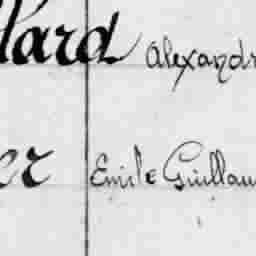 lard Alexandr
er Emile Guillau